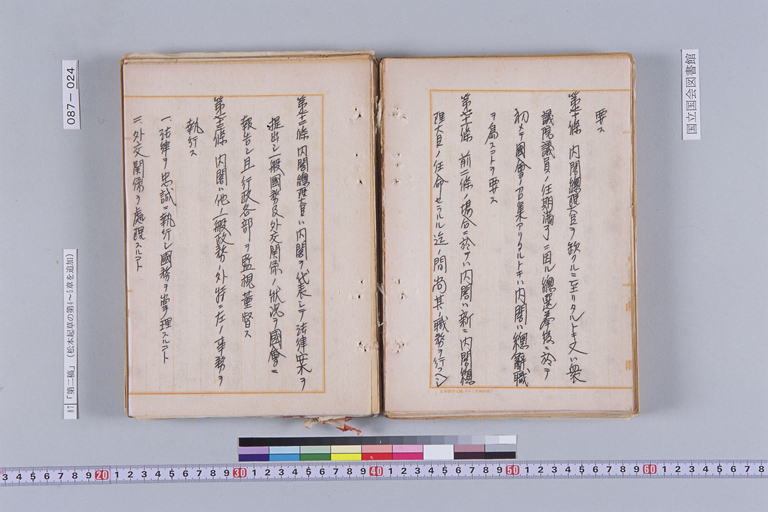 要ス
第七十條 内閣總理大臣ヲ欽クルニ至リタルトキ又ハ衆
議院議員ノ任期滿了ニ因ル總選擧後ニ於テ
初メテ國會ノ召集アリタルトキハ内閣ハ總辭職
ヲ爲スコトヲ要ス
條 前二條ノ場合ニ於テハ内閣ハ新ニ内閣總
理大臣ノ任命セラルル迄ノ間尚其ノ職務ヲ行フヘシ
條 内閣總理大臣ハ内閣ヲ代表シテ法律案ヲ
提出シ一般國務及外交關係ノ狀況ヲ國會ニ
報告シ且行政各部ヲ監視董督ス
條 内閣ハ他ノ一般政務ノ外特ニ左ノ事務ヲ
執行ス
一、法律ヲ忠誠ニ執行シ國務ヲ掌理スルコト
二、外交關係ヲ處理スルコト
国立国会図書館
087-024
「第二稿」(松本起草の第4~5章を追加)
3 4 5 6 7 8 9 20 1 2 3 4 5 6 7 8 9 30 1 2 3 4 5 6 7 8 9 40 1 2 3 4 5 6 7 8 9 50 1 2 3 4 5 6 7 8 9 60 1 2 3 4 5 6 7 8